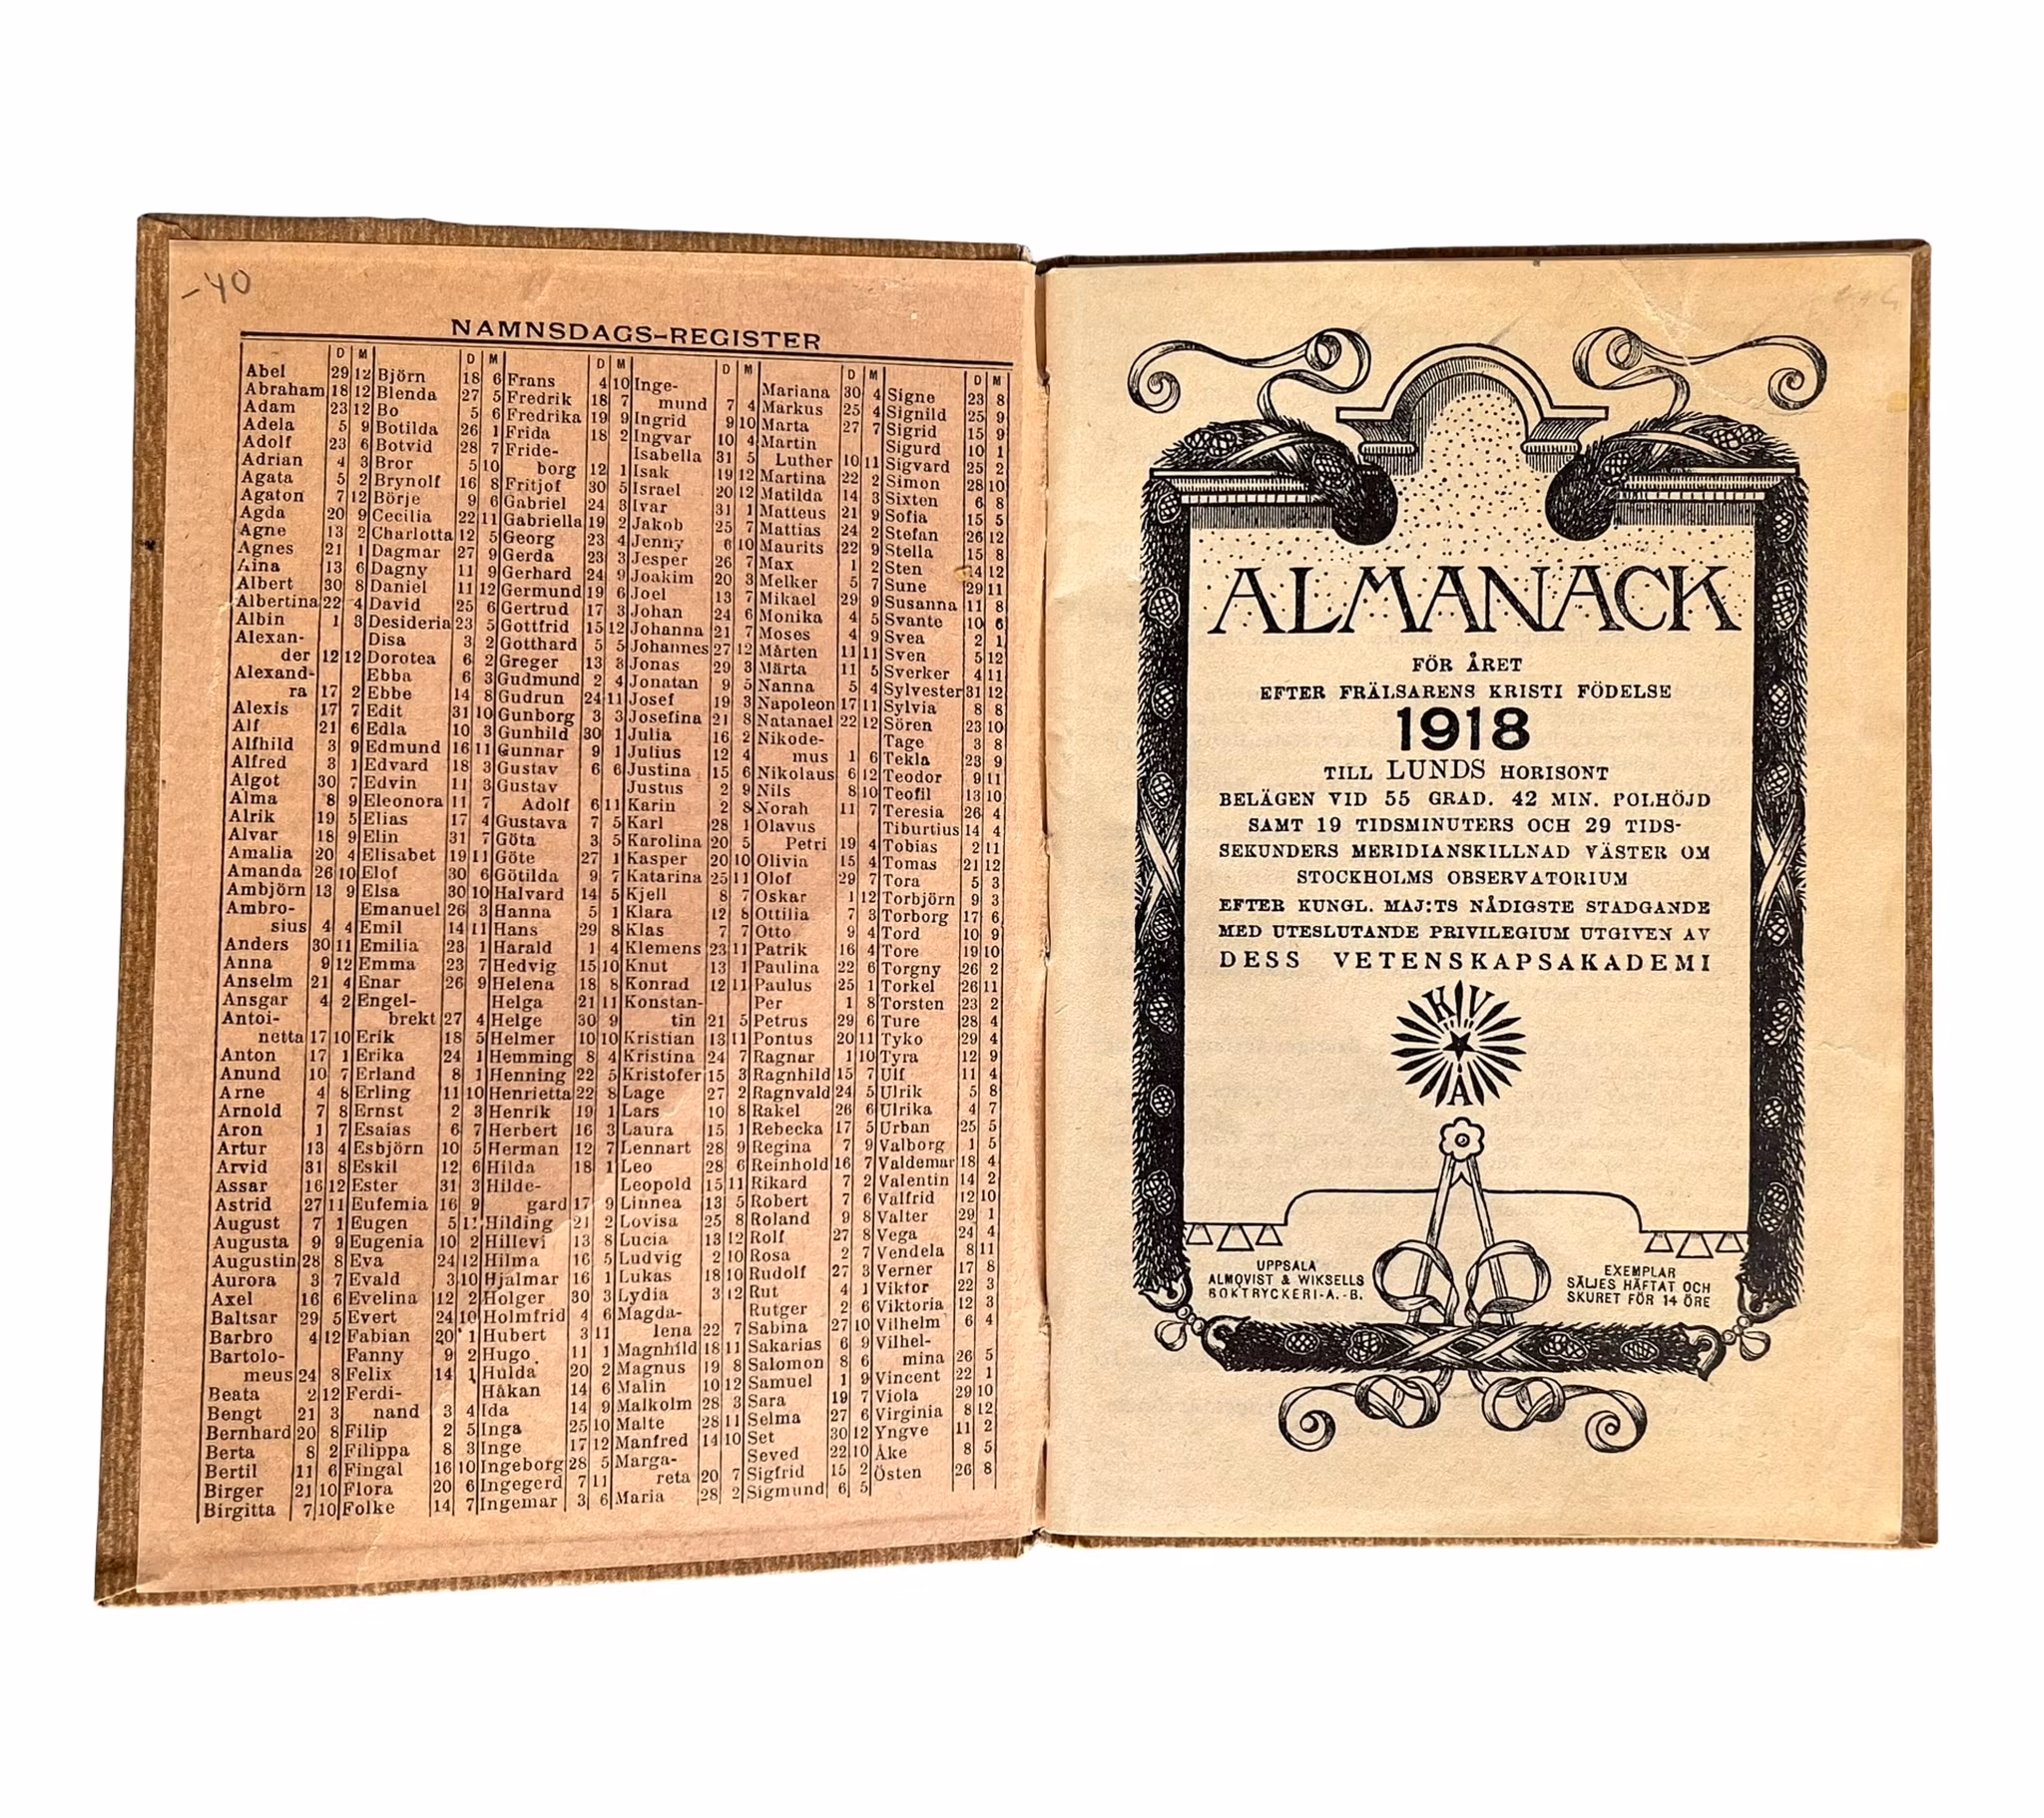 -40
NAMNSDAGS-REGISTER
D M
Abel 29 12
Abraham 18 12
Adam 23 12
Adela 5 9
Adolf 23 6
Adrian 4 3
Agata 5 2
Agaton 7 12
Agda 20 9
Agne 13 2
Agnes 21 1
Aina 13 6
Albert 30 8
Albertina 22 4
Albin 1 3
Alexan-
der 12 12
Alexand-
ra 17 2
Alexis 17 7
Alf 21 6
Alfhild 3 9
Alfred 3 1
Algot 30 7
Alma 8 9
Alrik 19 5
Alvar 18 9
Amalia 20 4
Amanda 26 10
Ambjörn 13 9
Ambro-
sius 4 4
Anders 30 11
Anna 9 12
Anselm 21 4
Ansgar 4 2
Antoi-
netta 17 10
Anton 17 1
Anund 10 7
Arne 4 8
Arnold 7 8
Aron 1 7
Artur 13 4
Arvid 31 8
Assar 16 12
Astrid 27 11
August 7 1
Augusta 9 9
Augustin 28 8
Aurora 3 7
Axel 16 6
Baltsar 29 5
Barbro 4 12
Bartolo-
meus 24 8
Beata 2 12
Bengt 21 3
Bernhard 20 8
Berta 8 2
Bertil 11 6
Birger 21 10
Birgitta 7 10
D M
Björn 18 6
Blenda 27 5
Bo 5 6
Botilda 26 1
Botvid 28 7
Bror 5 10
Brynolf 16 8
Börje 9 6
Cecilia 22 11
Charlotta 12 5
Dagmar 27 9
Dagny 11 9
Daniel 11 12
David 25 6
Desideria 23 5
Disa 3 2
Dorotea 6 2
Ebba 6 3
Ebbe 14 8
Edit 31 10
Edla 10 3
Edmund 16 11
Edvard 18 3
Edvin 11 3
Eleonora 11 7
Elias 17 4
Elin 31 7
Elisabet 19 11
Elof 30 6
Elsa 30 10
Emanuel 26 3
Emil 14 11
Emilia 23 1
Emma 23 7
Enar 26 9
Engel-
brekt 27 4
Erik 18 5
Erika 24 1
Erland 8 1
Erling 11 10
Ernst 2 3
Esaias 6 7
Esbjörn 10 5
Eskil 12 6
Ester 31 3
Eufemia 16 9
Eugen 5 11
Eugenia 10 2
Eva 24 12
Evald 3 10
Evelina 12 2
Evert 24 10
Fabian 20 1
Fanny 9 2
Felix 14 1
Ferdi-
nand 3 4
Filip 2 5
Filippa 8 3
Fingal 16 10
Flora 20 6
Folke 14 7
D M
Frans 4 10
Fredrik 18 7
Fredrika 19 9
Frida 18 2
Fride-
borg 12 1
Fritjof 30 5
Gabriel 24 3
Gabriella 19 2
Georg 23 4
Gerda 23 3
Gerhard 24 9
Germund 19 6
Gertrud 17 3
Gottfrid 15 12
Gotthard 5 5
Greger 13 3
Gudmund 2 4
Gudrun 24 11
Gunborg 3 3
Gunhild 30 1
Gunnar 9 1
Gustav 6 6
Gustav
Adolf 6 11
Gustava 7 5
Göta 3 5
Göte 27 1
Götilda 9 7
Halvard 14 5
Hanna 5 1
Hans 29 8
Harald 1 4
Hedvig 15 10
Helena 18 8
Helga 21 11
Helge 30 9
Helmer 10 10
Hemming 8 4
Henning 22 5
Henrietta 22 8
Henrik 19 1
Herbert 16 3
Herman 12 7
Hilda 18 1
Hilde-
gard 17 9
Hilding 21 2
Hillevi 13 8
Hilma 16 5
Hjalmar 16 1
Holger 30 3
Holmfrid 4 6
Hubert 3 11
Hugo 11 1
Hulda 20 2
Håkan 14 6
Ida 14 9
Inga 25 10
Inge 17 12
Ingeborg 28 5
Ingegerd 7 11
Ingemar 3 6
D M
Inge-
mund 7 4
Ingrid 9 10
Ingvar 10 4
Isabella 31 5
Isak 19 12
Israel 20 12
Ivar 31 1
Jakob 25 7
Jenny 6 10
Jesper 26 7
Joakim 20 3
Joel 13 7
Johan 24 6
Johanna 21 7
Johannes 27 12
Jonas 29 3
Jonatan 9 5
Josef 19 3
Josefina 21 8
Julia 16 2
Julius 12 4
Justina 15 6
Justus 2 9
Karin 2 8
Karl 28 1
Karolina 20 5
Kasper 20 10
Katarina 25 11
Kjell 8 7
Klara 12 8
Klas 7 7
Klemens 23 11
Knut 13 1
Konrad 12 11
Konstan-
tin 21 5
Kristian 13 11
Kristina 24 7
Kristofer 15 3
Lage 27 2
Lars 10 8
Laura 15 1
Lennart 28 9
Leo 28 6
Leopold 15 11
Linnea 13 5
Lovisa 25 8
Lucia 13 12
Ludvig 2 10
Lukas 18 10
Lydia 3 12
Magda-
lena 22 7
Magnhild 18 11
Magnus 19 8
Malin 10 12
Malkolm 28 3
Malte 28 11
Manfred 14 10
Marga-
reta 20 7
Maria 28 2
D M
Mariana 30 4
Markus 25 4
Marta 27 7
Martin
Luther 10 11
Martina 22 2
Matilda 14 3
Matteus 21 9
Mattias 24 2
Maurits 22 9
Max 1 2
Melker 5 7
Mikael 29 9
Monika 4 5
Moses 4 9
Mårten 11 11
Märta 11 5
Nanna 5 4
Napoleon 17 11
Natanael 22 12
Nikode-
mus 1 6
Nikolaus 6 12
Nils 8 10
Norah 11 7
Olavus
Petri 19 4
Olivia 15 4
Olof 29 7
Oskar 1 12
Ottilia 7 3
Otto 9 4
Patrik 16 4
Paulina 22 6
Paulus 25 1
Per 1 8
Petrus 29 6
Pontus 20 11
Ragnar 1 10
Ragnhild 15 7
Ragnvald 24 5
Rakel 26 6
Rebecka 17 5
Regina 7 9
Reinhold 16 7
Rikard 7 2
Robert 7 6
Roland 9 8
Rolf 27 8
Rosa 2 7
Rudolf 27 3
Rut 4 1
Rutger 2 6
Sabina 27 10
Sakarias 6 9
Salomon 8 6
Samuel 1 9
Sara 19 7
Selma 27 6
Set 30 12
Seved 22 10
Sigfrid 15 2
Sigmund 6 5
D M
Signe 23 8
Signild 25 9
Sigrid 15 9
Sigurd 10 1
Sigvard 25 2
Simon 28 10
Sixten 6 8
Sofia 15 5
Stefan 26 12
Stella 15 8
Sten 14 12
Sune 29 11
Susanna 11 8
Svante 10 6
Svea 2 1
Sven 5 12
Sverker 4 11
Sylvester 31 12
Sylvia 8 8
Sören 23 10
Tage 3 8
Tekla 23 9
Teodor 9 11
Teofil 13 10
Teresia 26 4
Tiburtius 14 4
Tobias 2 11
Tomas 21 12
Tora 5 3
Torbjörn 9 3
Torborg 17 6
Tord 10 9
Tore 19 10
Torgny 26 2
Torkel 26 11
Torsten 23 2
Ture 28 4
Tyko 29 4
Tyra 12 9
Ulf 11 4
Ulrik 5 8
Ulrika 4 7
Urban 25 5
Valborg 1 5
Valdemar 18 4
Valentin 14 2
Valfrid 12 10
Valter 29 1
Vega 24 4
Vendela 8 11
Verner 17 8
Viktor 22 3
Viktoria 12 3
Vilhelm 6 4
Vilhel-
mina 26 5
Vincent 22 1
Viola 29 10
Virginia 8 12
Yngve 11 2
Åke 8 5
Östen 26 8
ALMANACK
FÖR ÅRET
EFTER FRÄLSARENS KRISTI FÖDELSE
1918
TILL LUNDS HORISONT
BELÄGEN VID 55 GRAD. 42 MIN. POLHÖJD
SAMT 19 TIDSMINUTERS OCH 29 TIDS-
SEKUNDERS MERIDIANSKILLNAD VÄSTER OM
STOCKHOLMS OBSERVATORIUM
EFTER KUNGL. MAJ:TS NÅDIGSTE STADGANDE
MED UTESLUTANDE PRIVILEGIUM UTGIVEN AV
DESS VETENSKAPSAKADEMI
KVA
UPPSALA
ALMQVIST & WIKSELLS
BOKTRYCKERI-A.-B.
EXEMPLAR
SÄLJES HÄFTAT OCH
SKURET FÖR 14 ÖRE